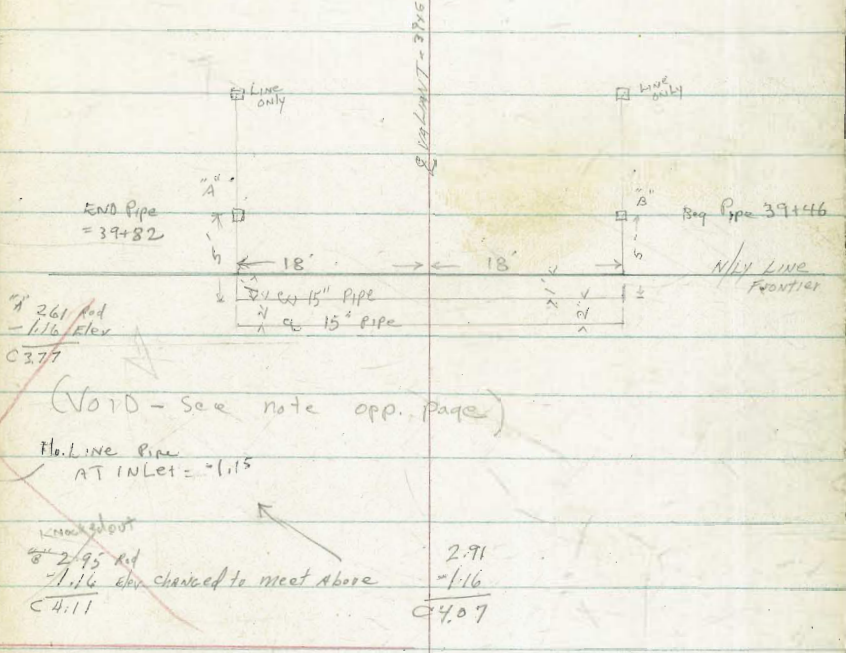 ℄ VALIANT = 39+6
LINE
ONLY
LINE
ONLY
"A"
"B"
END Pipe
= 39+82
Beg Pipe 39+46
5'
5'
18'
18'
N'LY LINE
FRONTIER
1'
℄ 15" PIPE
1'
2'
℄ 15" PIPE
2'
"A" 2.61 Rod
-1.16 Elev
C 3.77
(VOID - See note opp. page)
Flo.LINE Pipe
AT INLet = -1.15
Knockedout
"B" 2.95 Rod
-1.16 Elev. changed to meet Above
C 4.11
2.91
-1.16
C 4.07